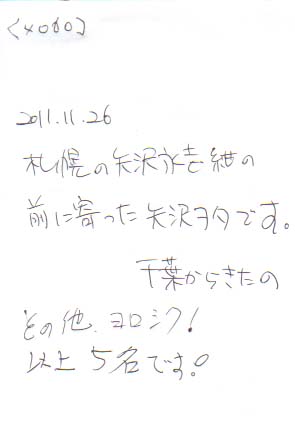 2011.11.26
札幌の矢沢永吉の
前に寄った矢沢ヲタです。
千葉からきたの
その他、ヨロシク!
以上5名です。